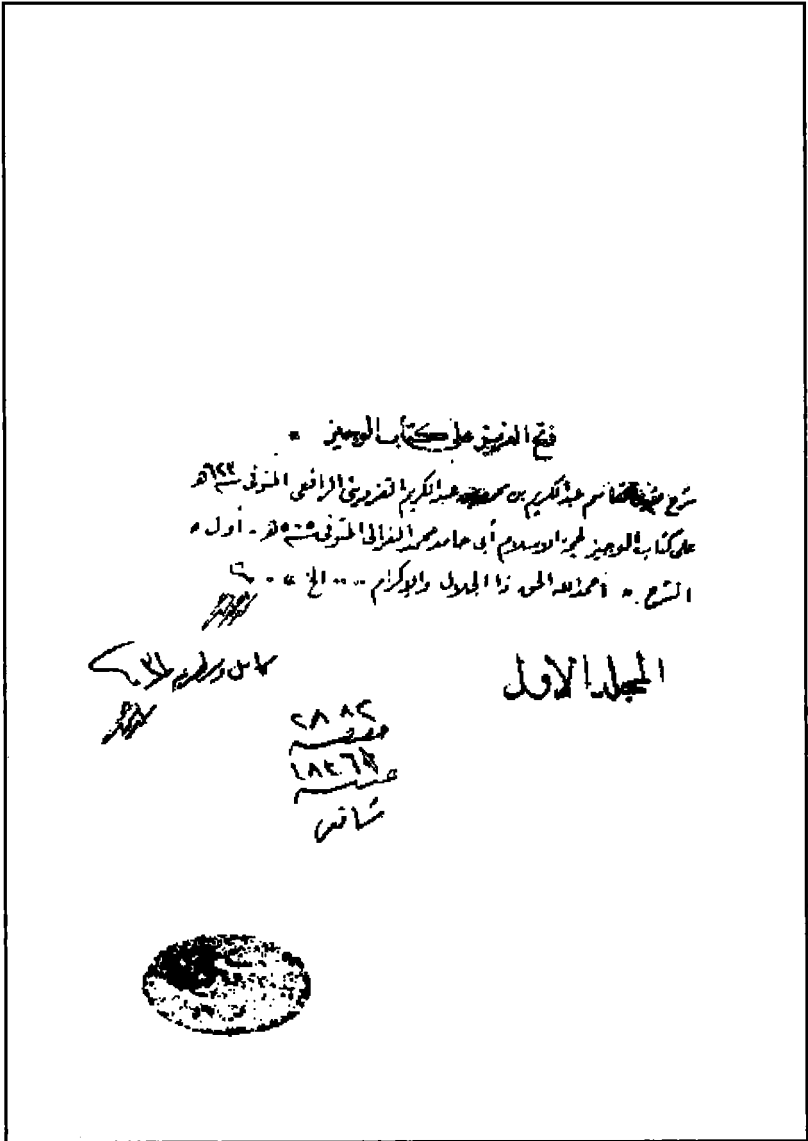 فتح العزيز على كتاب الوجيز *
شرح عبدالكريم بن عبدالكريم القزوينى الرافعى المتوفى سنة ٦٢٣ هـ
على كتاب الوجيز لحجة الاسلام أبى حامد محمد الغزالى المتوفى سنة ٥٠٥ هـ - أول
الشرح " أحمد الله الحق ذا الجلال والإكرام .... الخ " -
المجلد الاول
٢٨٨٢
خصوصية
عمومية
شافعى